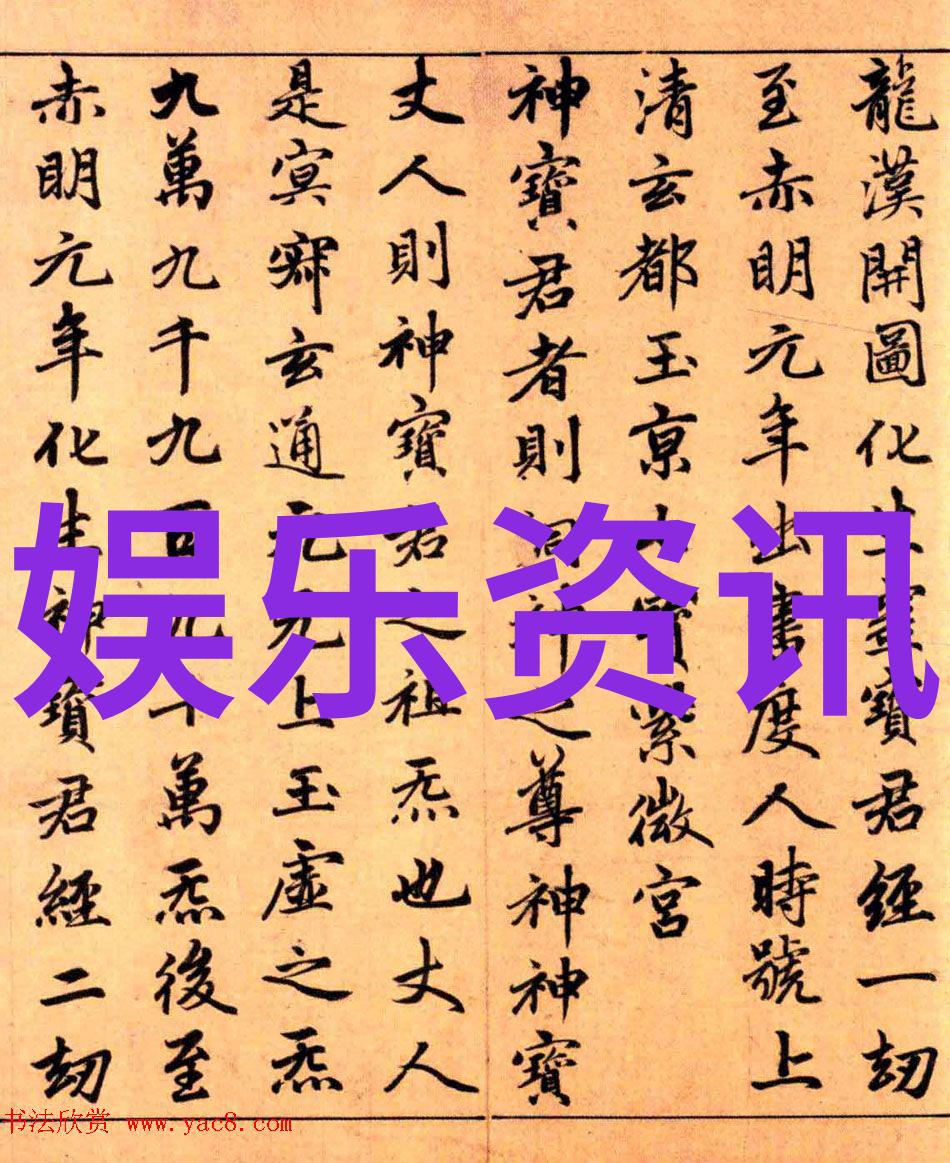 龍漢開圖化生靈寶君經一劫
至赤明元年出書度人時號上
清玄都玉京七寶紫微宮
神寶君者則洞神之尊神神寶
丈人則神寶君之祖炁也丈人
是冥寂玄通元无上玉虛之炁
九萬九千九百九十萬炁後至
赤明元年化生神寶君經二劫
娱乐资讯
书法欣赏 www.yac8.com